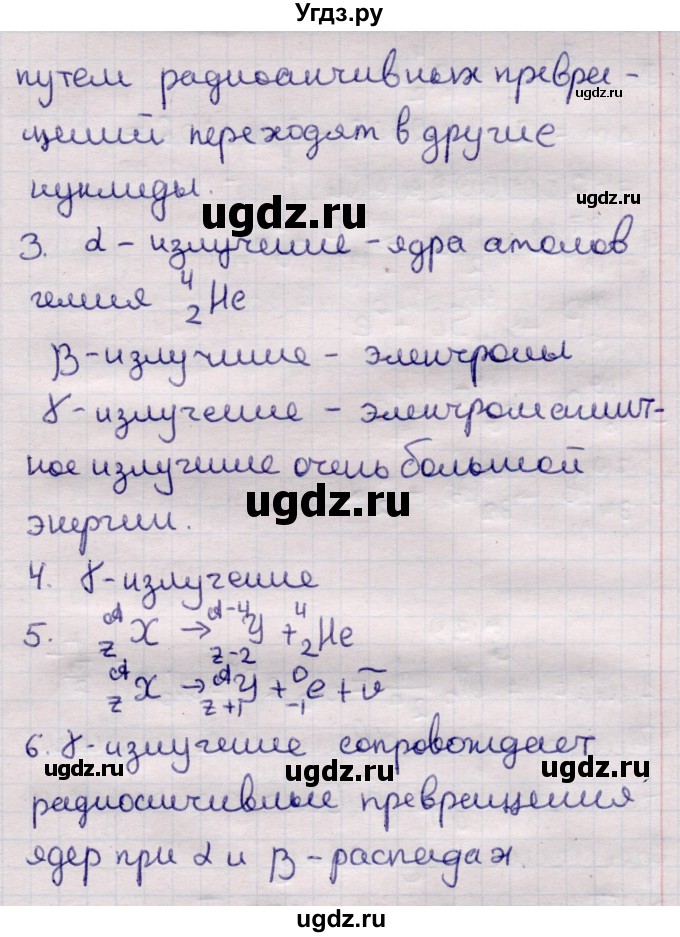 Угдз.ру
путем радиоактивных превра-
щений переходят в другие
нуклиды.
ugdz.ru
ugdz.ru
3. α - излучение - ядра атомов
гелия ⁴₂He
β - излучение - электроны
γ - излучение - электромагнит-
ное излучение очень большой
ugdz.ru
энергии.
4. γ - излучение
5. ᴬ_Z X → ᴬ⁻⁴_Z₋₂ Y + ⁴₂He
ᴬ_Z X → ᴬ_Z₊₁ Y + ⁰₋₁e + ν̃
6. γ - излучение сопровождает
ugdz.ru
ugdz.ru
ugdz.ru
радиоактивные превращения
ядер при α и β - распадах.
ugdz.ru